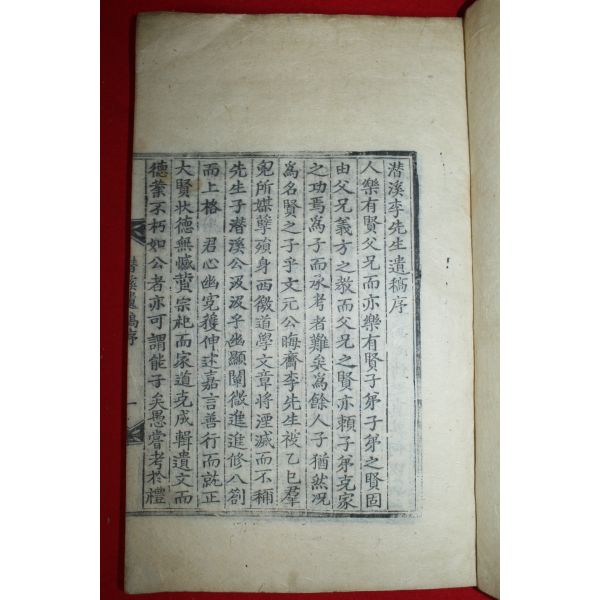 潛溪李先生遺稿序
人樂有賢父兄而亦樂有賢子弟子弟之賢固
由父兄義方之敎而父兄之賢亦賴子弟克家
之功焉爲子而承考者難矣爲餘人子猶然况
爲名賢之子乎文元公晦齋李先生被乙巳羣
兇所媒孽殞身西徼道學文章將湮滅而不稱
先生子潛溪公汲汲乎幽顯闡微進進修八劄
而上格 君心幽寃獲伸述嘉言善行而就正
大賢狀德無憾蜚宗祀而家道克成輯遺文而
德業不朽如公者亦可謂能子矣愚嘗考於禮
潛溪遺稿序
一